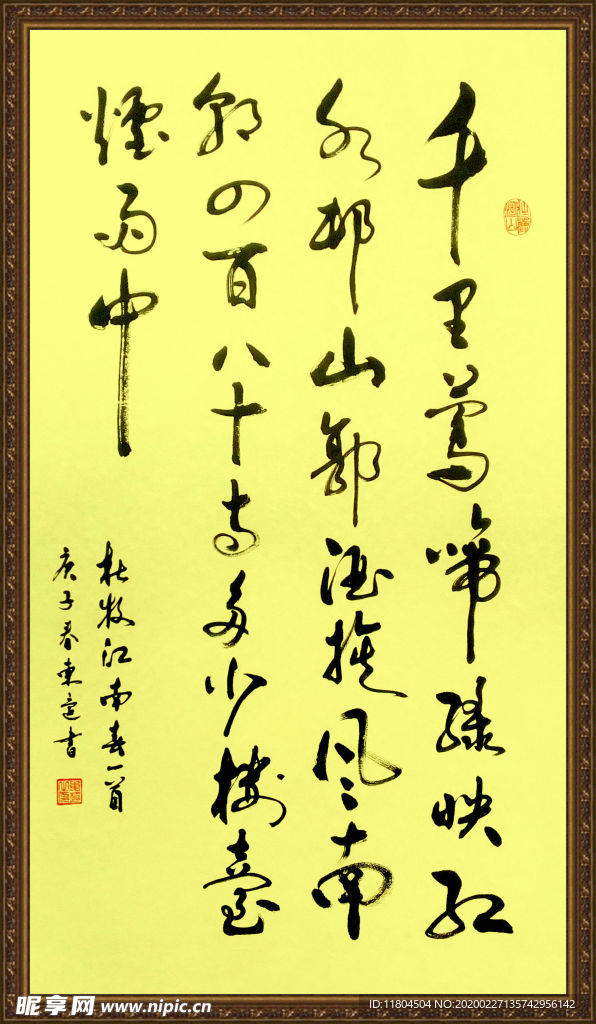 千里莺啼绿映红
水村山郭酒旗风南
朝四百八十寺多少楼臺
煙雨中
杜牧江南春一首
庚子春東寔書
昵享网 www.nipic.cn
ID:11804504 NO:20200227135742956142